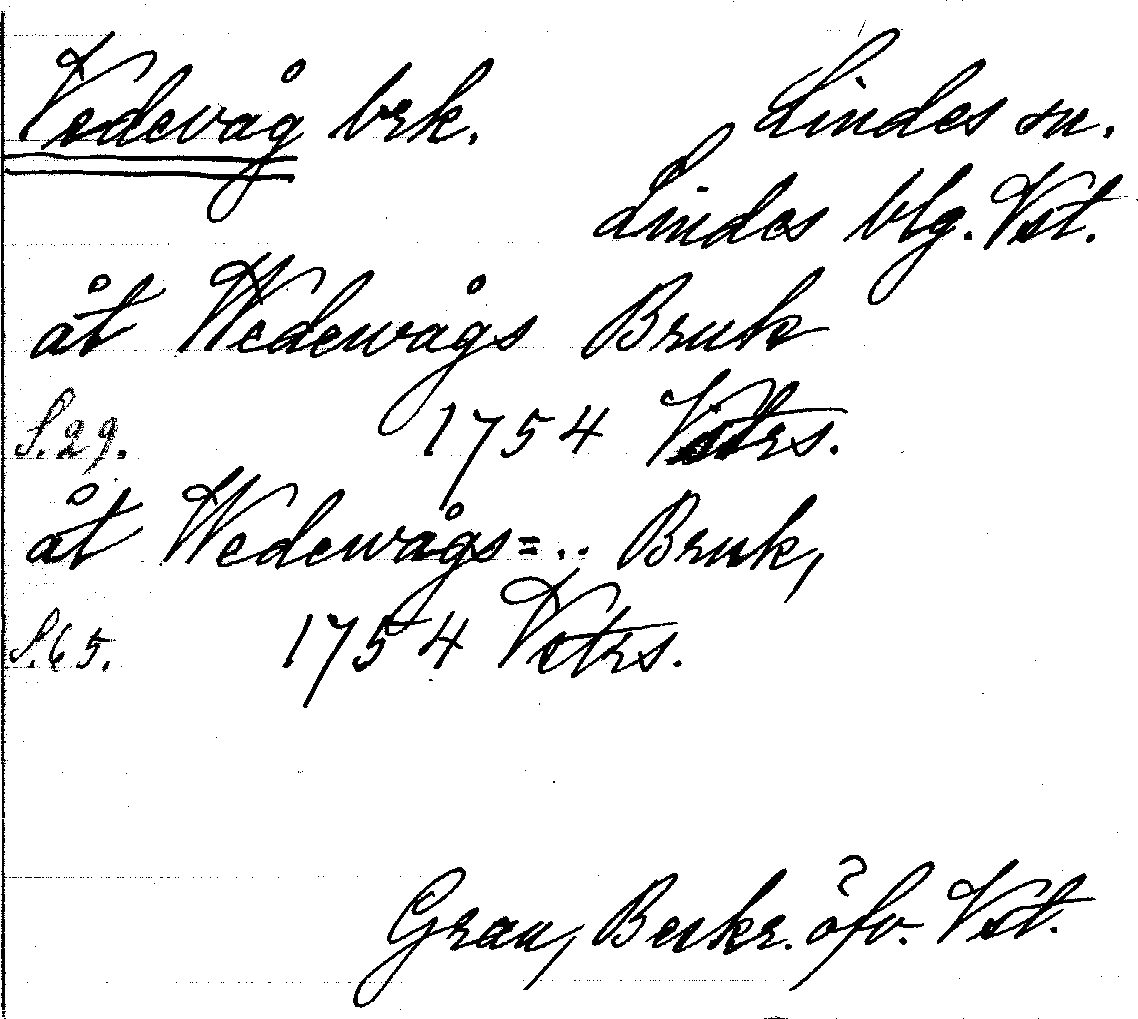 Vedevåg brk. Lindes sn.
Lindes blg. Vst.
åt Wedewågs Bruk
S.29. 1754 Vstrs.
åt Wedewågs=.. Bruk,
S.65. 1754 Vstrs.
Grau, Beskr. öfv. Vst.